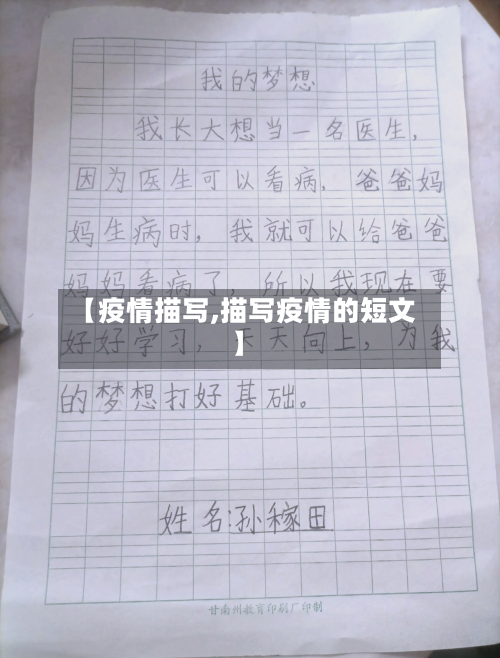 我的梦想
我长大想当一名医生,
因为医生可以看病. 爸爸妈
妈生病时, 我就可以给爸爸
妈妈看病了, 所以我现在要
【疫情描写,描写疫情的短文
】
好好学习, 天天向上, 为我
的梦想打好基础。
姓名:孙稼田
甘南州教育印刷厂印制